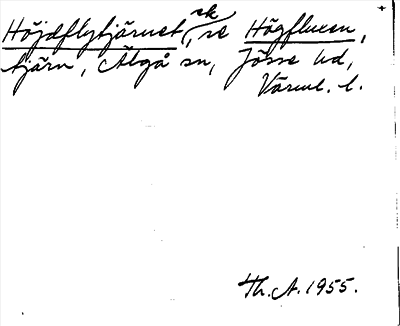 Höjdflytjärnet, sk se Högfluxen,
tjärn, Älgå sn, Jösse hd,
Värml. l.
Th. A. 1955.